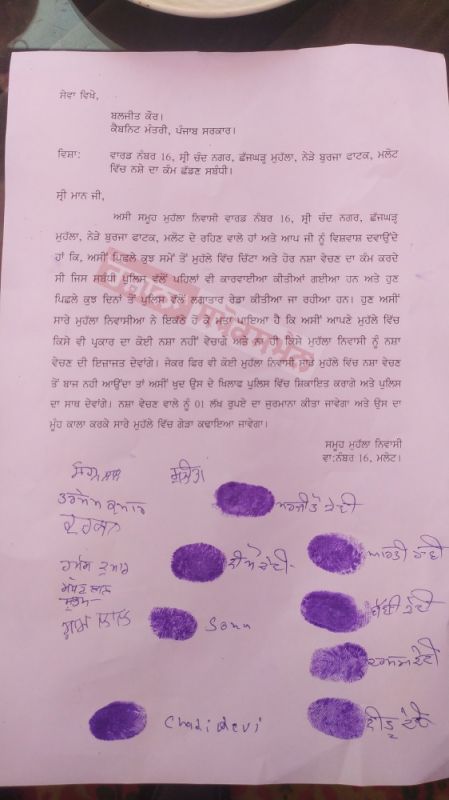 ਸੇਵਾ ਵਿਖੇ,
ਬਲਜੀਤ ਕੌਰ।
ਕੈਬਨਿਟ ਮੰਤਰੀ, ਪੰਜਾਬ ਸਰਕਾਰ।
ਵਿਸ਼ਾ: ਵਾਰਡ ਨੰਬਰ 16, ਸ੍ਰੀ ਚੰਦ ਨਗਰ, ਛੱਜਘੜ੍ਹ ਮੁਹੱਲਾ, ਨੇੜੇ ਬੁਰਜਾ ਫਾਟਕ, ਮਲੋਟ
ਵਿੱਚ ਨਸ਼ੇ ਦਾ ਕੰਮ ਛੱਡਣ ਸਬੰਧੀ।
ਸ੍ਰੀ ਮਾਨ ਜੀ,
ਅਸੀ ਸਮੂਹ ਮੁਹੱਲਾ ਨਿਵਾਸੀ ਵਾਰਡ ਨੰਬਰ 16, ਸ੍ਰੀ ਚੰਦ ਨਗਰ, ਛੱਜਘੜ੍ਹ
ਮੁਹੱਲਾ, ਨੇੜੇ ਬੁਰਜਾ ਫਾਟਕ, ਮਲੋਟ ਦੇ ਰਹਿਣ ਵਾਲੇ ਹਾਂ ਅਤੇ ਆਪ ਜੀ ਨੂੰ ਵਿਸ਼ਵਾਸ਼ ਦਵਾਉਂਦੇ
ਹਾਂ ਕਿ, ਅਸੀਂ ਪਿਛਲੇ ਕੁਝ ਸਮੇਂ ਤੋਂ ਮੁਹੱਲੇ ਵਿੱਚ ਚਿੱਟਾ ਅਤੇ ਹੋਰ ਨਸ਼ਾ ਵੇਚਣ ਦਾ ਕੰਮ ਕਰਦੇ
ਸੀ ਜਿਸ ਸਬੰਧੀ ਪੁਲਿਸ ਵੱਲੋਂ ਪਹਿਲਾਂ ਵੀ ਕਾਰਵਾਈਆ ਕੀਤੀਆਂ ਗਈਆ ਹਨ ਅਤੇ ਹੁਣ
ਪਿਛਲੇ ਕੁਝ ਦਿਨਾਂ ਤੋਂ ਪੁਲਿਸ ਵੱਲੋਂ ਲਗਾਤਾਰ ਰੇਡਾ ਕੀਤੀਆ ਜਾ ਰਹੀਆ ਹਨ। ਹੁਣ ਅਸੀਂ
ਸਾਰੇ ਮੁਹੱਲਾ ਨਿਵਾਸੀਆ ਨੇ ਇਕੱਠੇ ਹੋ ਕੇ ਮਤਾ ਪਾਇਆ ਹੈ ਕਿ ਅਸੀਂ ਆਪਣੇ ਮੁਹੱਲੇ ਵਿੱਚ
ਕਿਸੇ ਵੀ ਪ੍ਰਕਾਰ ਦਾ ਕੋਈ ਨਸ਼ਾ ਨਹੀਂ ਵੇਚਾਂਗੇ ਅਤੇ ਨਾ ਹੀ ਕਿਸੇ ਮੁਹੱਲਾ ਨਿਵਾਸੀ ਨੂੰ ਨਸ਼ਾ
ਵੇਚਣ ਦੀ ਇਜ਼ਾਜਤ ਦੇਵਾਂਗੇ। ਜੇਕਰ ਫਿਰ ਵੀ ਕੋਈ ਮੁਹੱਲਾ ਨਿਵਾਸੀ ਸਾਡੇ ਮੁਹੱਲੇ ਵਿੱਚ ਨਸ਼ਾ ਵੇਚਣ
ਤੋਂ ਬਾਜ ਨਹੀ ਆਉਂਦਾ ਤਾਂ ਅਸੀਂ ਖੁਦ ਉਸ ਦੇ ਖਿਲਾਫ ਪੁਲਿਸ ਵਿੱਚ ਸ਼ਿਕਾਇਤ ਕਰਾਗੇ ਅਤੇ ਪੁਲਿਸ
ਦਾ ਸਾਥ ਦੇਵਾਂਗੇ। ਨਸ਼ਾ ਵੇਚਣ ਵਾਲੇ ਨੂੰ 01 ਲੱਖ ਰੁਪਏ ਦਾ ਜੁਰਮਾਨਾ ਕੀਤਾ ਜਾਵੇਗਾ ਅਤੇ ਉਸ ਦਾ
ਮੂੰਹ ਕਾਲਾ ਕਰਕੇ ਸਾਰੇ ਮੁਹੱਲੇ ਵਿੱਚ ਗੇੜਾ ਕਢਾਇਆ ਜਾਵੇਗਾ।
ਸਮੂਹ ਮੁਹੱਲਾ ਨਿਵਾਸੀ
ਵਾ:ਨੰਬਰ 16, ਮਲੋਟ।
ਸੁਨੀਤਾ
ਦੇਵੀ
ਦੇਵੀ
ਦੇਵੀ
ਲਾਲ
Sonu